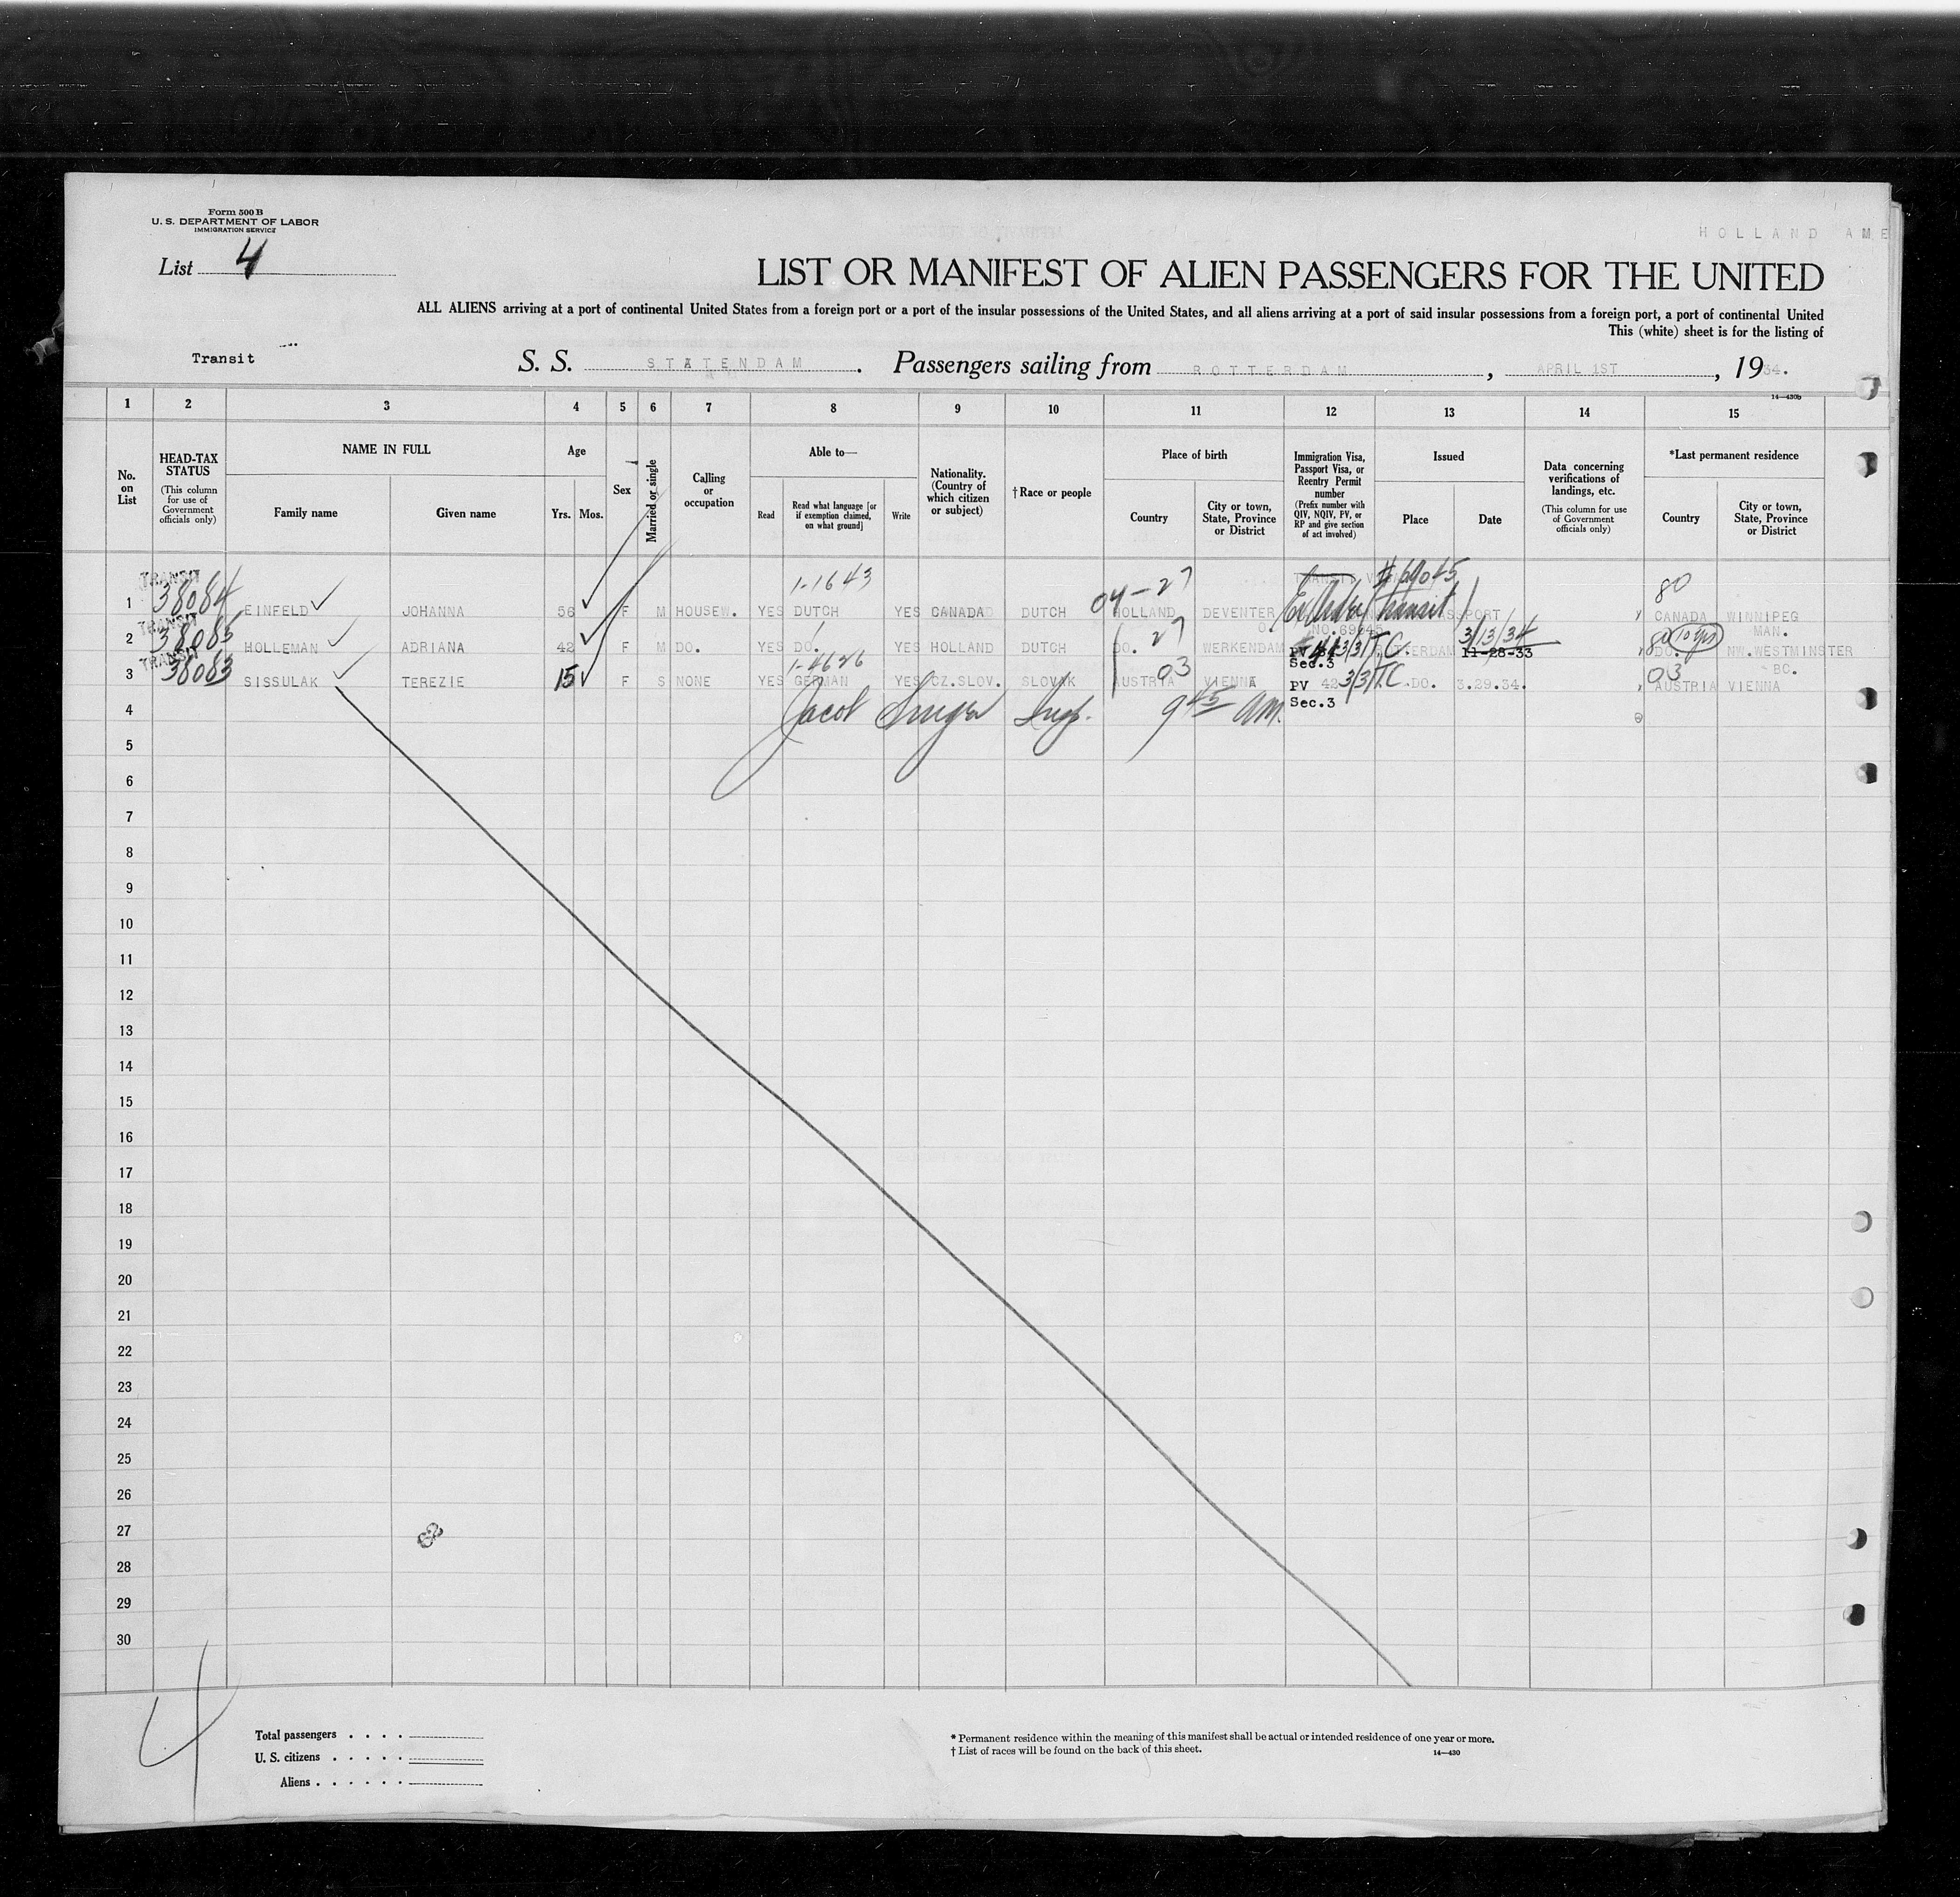 Form 500 B
U. S. DEPARTMENT OF LABOR
IMMIGRATION SERVICE
HOLLAND AME
List 4
LIST OR MANIFEST OF ALIEN PASSENGERS FOR THE UNITED
ALL ALIENS arriving at a port of continental United States from a foreign port or a port of the insular possessions of the United States, and all aliens arriving at a port of said insular possessions from a foreign port, a port of continental United
This (white) sheet is for the listing of
Transit S. S. STATENDAM. Passengers sailing from ROTTERDAM, APRIL 1ST, 1934.
14—430b
1 2 3 4 5 6 7 8 9 10 11 12 13 14 15
No. on List
HEAD-TAX STATUS (This column for use of Government officials only)
NAME IN FULL
Family name Given name
Age
Yrs. Mos.
Sex
Married or single
Calling or occupation
Able to—
Read Read what language [or if exemption claimed, on what ground] Write
Nationality. (Country of which citizen or subject)
† Race or people
Place of birth
Country City or town, State, Province or District
Immigration Visa, Passport Visa, or Reentry Permit number (Prefix number with QIV, NQIV, PV, or RP and give section of act involved)
Issued
Place Date
Data concerning verifications of landings, etc. (This column for use of Government officials only)
*Last permanent residence
Country City or town, State, Province or District
TRANSIT 1-1643 04-27 #69045 80
1 38084 EINFELD JOHANNA 56 F M HOUSEW. YES DUTCH YES CANADA DUTCH HOLLAND DEVENTER transit PASSPORT CANADA WINNIPEG
TRANSIT 27 NO.69045 3/13/34 80 10 yrs MAN.
2 38085 HOLLEMAN ADRIANA 42 F M DO. YES DO. YES HOLLAND DUTCH DO. WERKENDAM PV 3/3/T.C. ROTTERDAM 11-28-33 DO. NW.WESTMINSTER
TRANSIT 1-4626 03 Sec.3 03 BC.
3 38083 SISSULAK TEREZIE 15 F S NONE YES GERMAN YES CZ.SLOV. SLOVAK AUSTRIA VIENNA PV 42 3/3/T.C. DO. 3.29.34. AUSTRIA VIENNA
Sec.3
4 Jacob Singer Insp. 9 45 AM.
5
6
7
8
9
10
11
12
13
14
15
16
17
18
19
20
21
22
23
24
25
26
27
28
29
30
4
Total passengers . . . .
U. S. citizens . . . . .
Aliens . . . . . .
* Permanent residence within the meaning of this manifest shall be actual or intended residence of one year or more.
† List of races will be found on the back of this sheet.
14—430